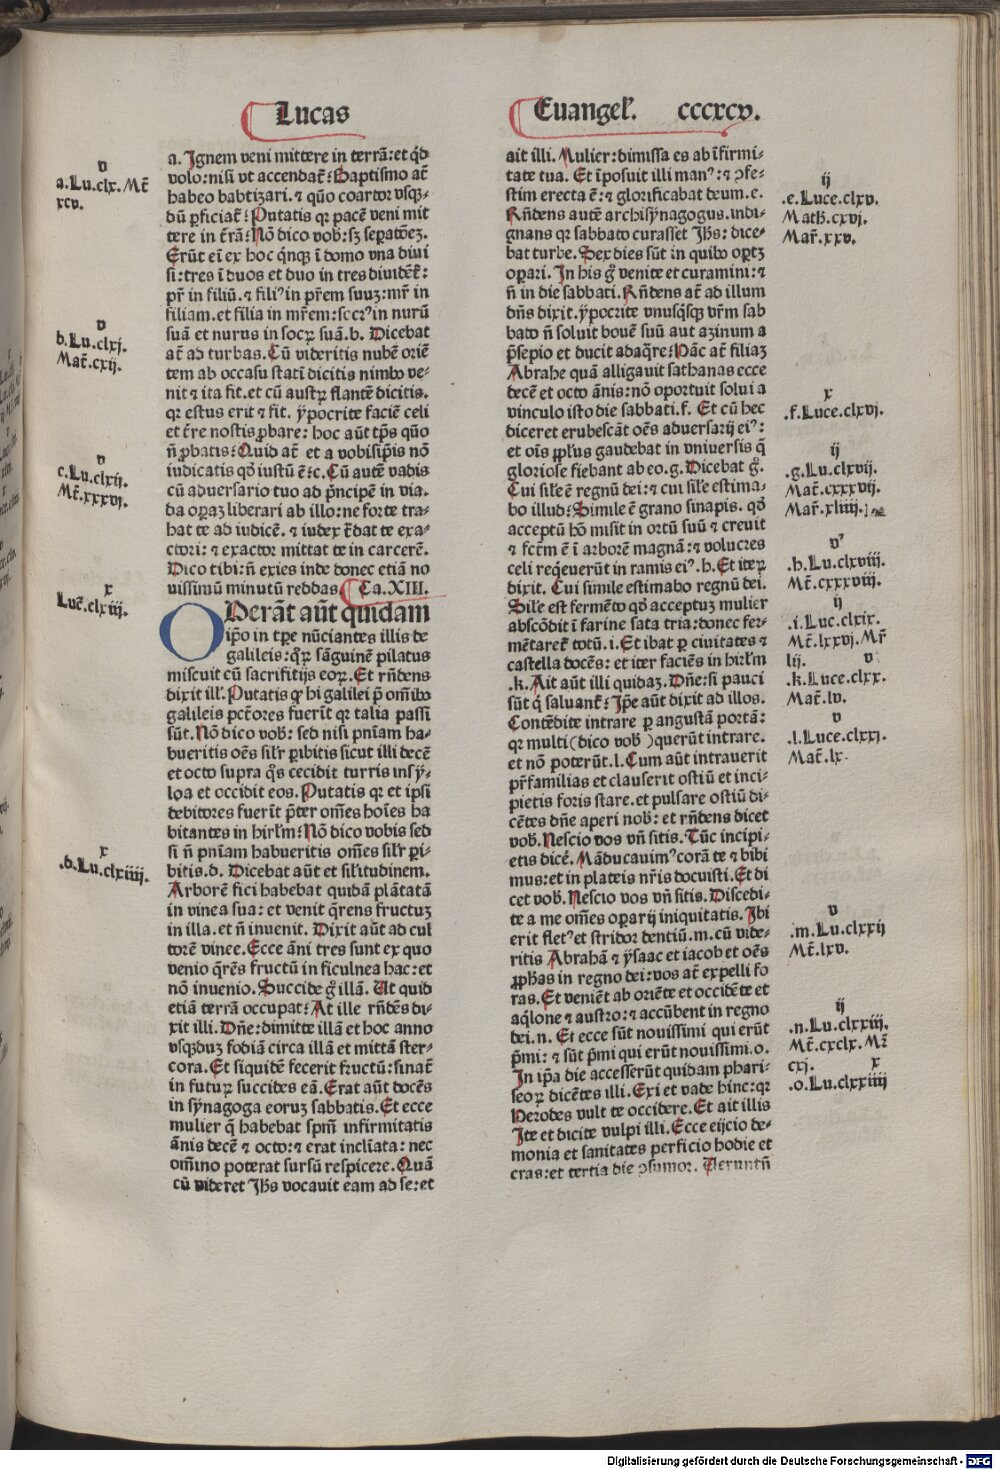 Lucas
a. Ignem veni mittere in terrã: et qd
volo: nisi vt accendat᷑: Baptismo at᷑
habeo babtizari. ⁊ quõ coartor vsq-
dũ ꝑficiat᷑: Putatis qꝛ pacẽ veni mit
tere in t᷑rã: Nõ dico vob᷑: sꝫ seꝑatõeꝫ.
Erũt eĩ ex hoc qnqꝫ ĩ domo vna diui
si: tres ĩ duos et duo in tres diuidẽt᷑:
pr̃ in filiũ. ⁊ filiꝰ in pr̃em suuꝫ: mr̃ in
filiam. et filia in mr̃em: socrꝰ in nurũ
suã et nurus in socꝝ suã. b. Dicebat
at᷑ ad turbas. Cũ videritis nubẽ oriẽ
tem ab occasu statĩ dicitis nimbꝰ ve-
nit ⁊ ita fit. et cũ austꝝ flantẽ dicitis.
qꝛ estus erit ⁊ fit. ypocrite faciẽ celi
et t᷑re nostis ꝓbare: hoc aũt tp̃s quõ
ñ ꝓbatis: Quid at᷑ et a vobisip̃is nõ
iudicatis qđ iustũ ẽ: c. Cũ autẽ vadis
cũ aduersario tuo ad pncipẽ in via.
da oꝑaꝫ liberari ab illo: ne forte tra-
hat te ad iudicẽ. ⁊ iudex t᷑dat te exa-
ctori: ⁊ exactor mittat te in carcerẽ.
Dico tibi: ñ exies inde donec etiã no
uissimũ minutũ reddas Ca. XIII.
ODerãt aũt quidam
ip̃o in tꝑe nũciantes illis de
galileis: qꝝ sãguinẽ pilatus
miscuit cũ sacrifitijs eoꝝ. Et rñdens
dixit ill᷑. Putatis qꝙ hi galilei p̃ om̃ibꝰ
galileis pct̃ores fuerĩt qꝛ talia passi
sũt. Nõ dico vob᷑: sed nisi pnĩam ha-
bueritis oẽs sil᷑r ꝑibitis sicut illi decẽ
et octo supra qs cecidit turris in sy-
loa et occidit eos. Putatis qꝛ et ipsi
debitores fuerĩt p̃ter om̃es hoĩes ha
bitantes in hirl᷑m: Nõ dico vobis sed
si ñ pnĩam habueritis om̃es sil᷑r ꝑi-
bitis. d. Dicebat aũt et sil᷑itudinem.
Arborẽ fici habebat quidã plãtatã
in vinea sua: et venit qrens fructuꝫ
in illa. et ñ inuenit. Dixit aũt ad cul
torẽ vinee. Ecce ãni tres sunt ex quo
venio qrẽs fructũ in ficulnea hac: et
nõ inuenio. Succide g illã. Ut quid
etiã terrã occupat: At ille rñdẽs di-
xit illi. Dñe: dimitte illã et hoc anno
vsqduꝫ fodiã circa illã et mittã ster-
cora. Et siquidẽ fecerit fructũ: sinat᷑
in futuꝝ succides eã. Erat aũt docẽs
in synagoga eoruꝫ sabbatis. Et ecce
mulier q habebat spm̃ infirmitatis
ãnis decẽ ⁊ octo: ⁊ erat inclĩata: nec
om̃ino poterat sursũ respicere. Quã
cũ videret Jhs vocauit eam ad se: et
v
a. Lu. clx. Mt᷑
xcv.
v
b. Lu. clxj.
Mat᷑. cxij.
v
c. Lu. clxij.
Mt᷑. xxxvj.
x
Luc̃. clxiij.
x
.d. Lu. clxiiij.
Euangel᷑. cccxcv.
ait illi. Mulier: dimissa es ab ĩfirmi-
tate tua. Et ĩposuit illi manꝰ: ⁊ ꝯfe-
stim erecta ẽ: ⁊ glorificabat deum. e.
Rñdens autẽ archisynagogus. indi-
gnans qꝛ sabbato curasset Jhs: dice-
bat turbe. Sex dies sũt in quibꝰ oꝑtꝫ
oꝑari. In his g venite et curamini: ⁊
ñ in die sabbati. Rñdens at᷑ ad illum
dñs dixit. ypocrite vnusqsqꝫ vr̃m sab
bato ñ soluit bouẽ suũ aut azinum a
p̃sepio et ducit adaqre: Hãc at᷑ filiaꝫ
Abrahe quã alligauit sathanas ecce
decẽ et octo ãnis: nõ oportuit solui a
vinculo isto die sabbati. f. Et cũ hec
diceret erubescãt oẽs aduersarij eiꝰ:
et oĩs ppl̃us gaudebat in vniuersis q
gloriose fiebant ab eo. g. Dicebat g.
Cui sil᷑e ẽ regnũ dei: ⁊ cui sil᷑e estima-
bo illud: Simile ẽ grano sinapis. qđ
acceptũ hõ misit in ortũ suũ ⁊ creuit
⁊ fct̃m ẽ ĩ arborẽ magnã: ⁊ volucres
celi reqeuerũt in ramis eiꝰ. h. Et iteꝝ
dixit. Cui simile estimabo regnũ dei.
Sil᷑e est fermẽto qđ acceptuꝫ mulier
abscõdit ĩ farine sata tria: donec fer-
mẽtaret᷑ totũ. i. Et ibat ꝑ ciuitates ⁊
castella docẽs: et iter faciẽs in hirl᷑m
.k. Ait aũt illi quidaꝫ. Dñe: si pauci
sũt q saluant᷑: Ip̃e aũt dixit ad illos.
Contẽdite intrare ꝑ angustã portã:
qꝛ multi (dico vob᷑) querũt intrare.
et nõ poterũt. l. Cum aũt intrauerit
pr̃familias et clauserit ostiũ et inci-
pietis foris stare. et pulsare ostiũ di-
cẽtes dñe aperi nob᷑: et rñdens dicet
vob᷑. Nescio vos vñ sitis. Tũc incipi-
etis dicẽ. Mãducauimꝰ corã te ⁊ bibi
mus: et in plateis nr̃is docuisti. Et di
cet vob᷑. Nescio vos vñ sitis. Discedi-
te a me om̃es oꝑarij iniquitatis. Ibi
erit fletꝰ et stridor dentiũ. m. cũ vide-
ritis Abrahã ⁊ ysaac et iacob et oẽs
ꝓphas in regno dei: vos at᷑ expelli fo
ras. Et veniẽt ab oriẽte et occidẽte et
aqlone ⁊ austro: ⁊ accũbent in regno
dei. n. Et ecce sũt nouissimi qui erũt
p̃mi: ⁊ sũt p̃mi qui erũt nouissimi. o.
In ip̃a die accesserũt quidam phari-
seoꝝ dicẽtes illi. Exi et vade hinc: qꝛ
Herodes vult te occidere. Et ait illis
Ite et dicite vulpi illi. Ecce eijcio de-
monia et sanitates perficio hodie et
cras: et tertia die ꝯsumor. Veruntñ
ij
.e. Luce. clxv.
Math. cxvj.
Mar᷑. xxv.
x
.f. Luce. clxvj.
ij
.g. Lu. clxvij.
Mat᷑. cxxxvij.
Mar᷑. xliiij.
v
.h. Lu. clxviij.
Mt᷑. cxxxviij.
ij
.i. Luc. clxix.
Mt᷑. lxxvj. Mr᷑
lij.
v
.k. Luce. clxx.
Mat᷑. lv.
v
.l. Luce. clxxj.
Mat᷑. lx.
v
.m. Lu. clxxij
Mt᷑. lxv.
ij
.n. Lu. clxxiij.
Mt᷑. cxclx. Mr᷑
cxj.
x
.o. Lu. clxxiiij
Digitalisierung gefördert durch die Deutsche Forschungsgemeinschaft - DFG